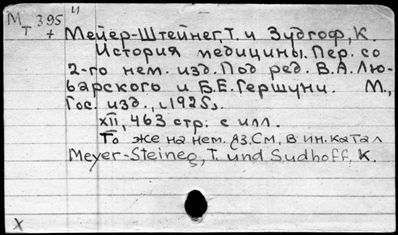 М 395 и
т +
Мейер-Штейнег, Т. и Зудгоф, К.
История медицины. Пер. со
2-го нем. изд. Под ред. В.А. Лю-
барского и Б.Е. Гершуни. М.,
Гос. изд., [1925].
XII, 463 стр. с илл.
То же на нем. яз. См. в ин. катал
Meyer-Steineg, T. und Sudhoff, K.
X